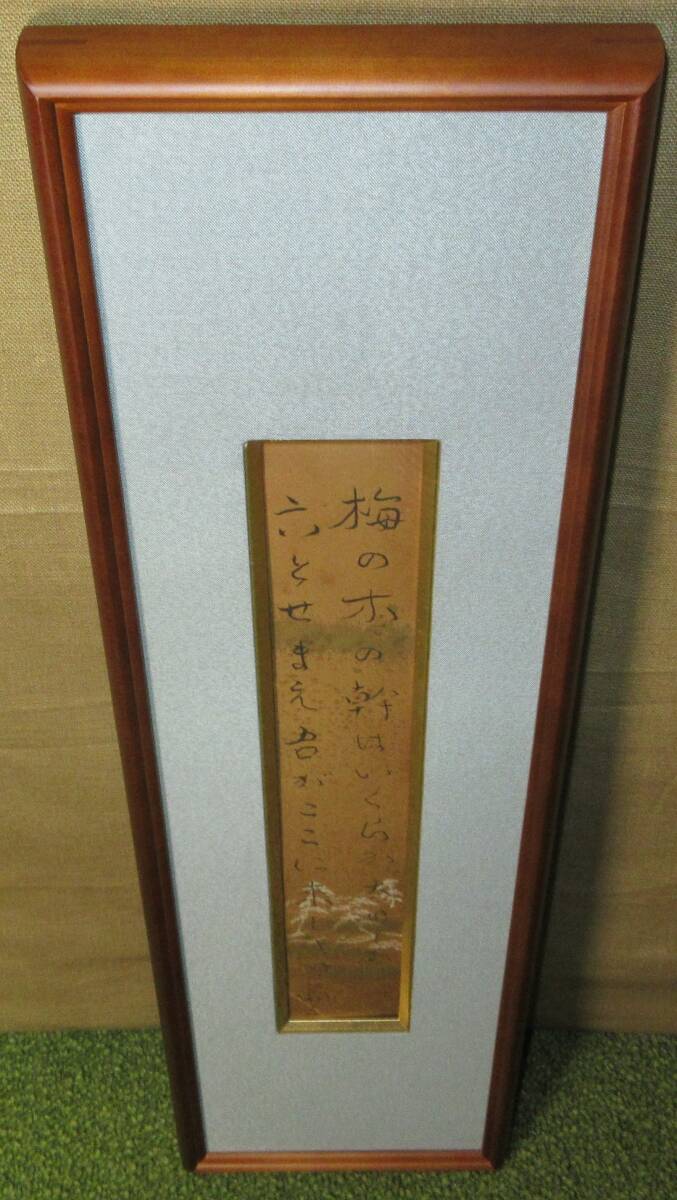 梅の木の幹はいくらか太
六とせまえ吾がここに来し